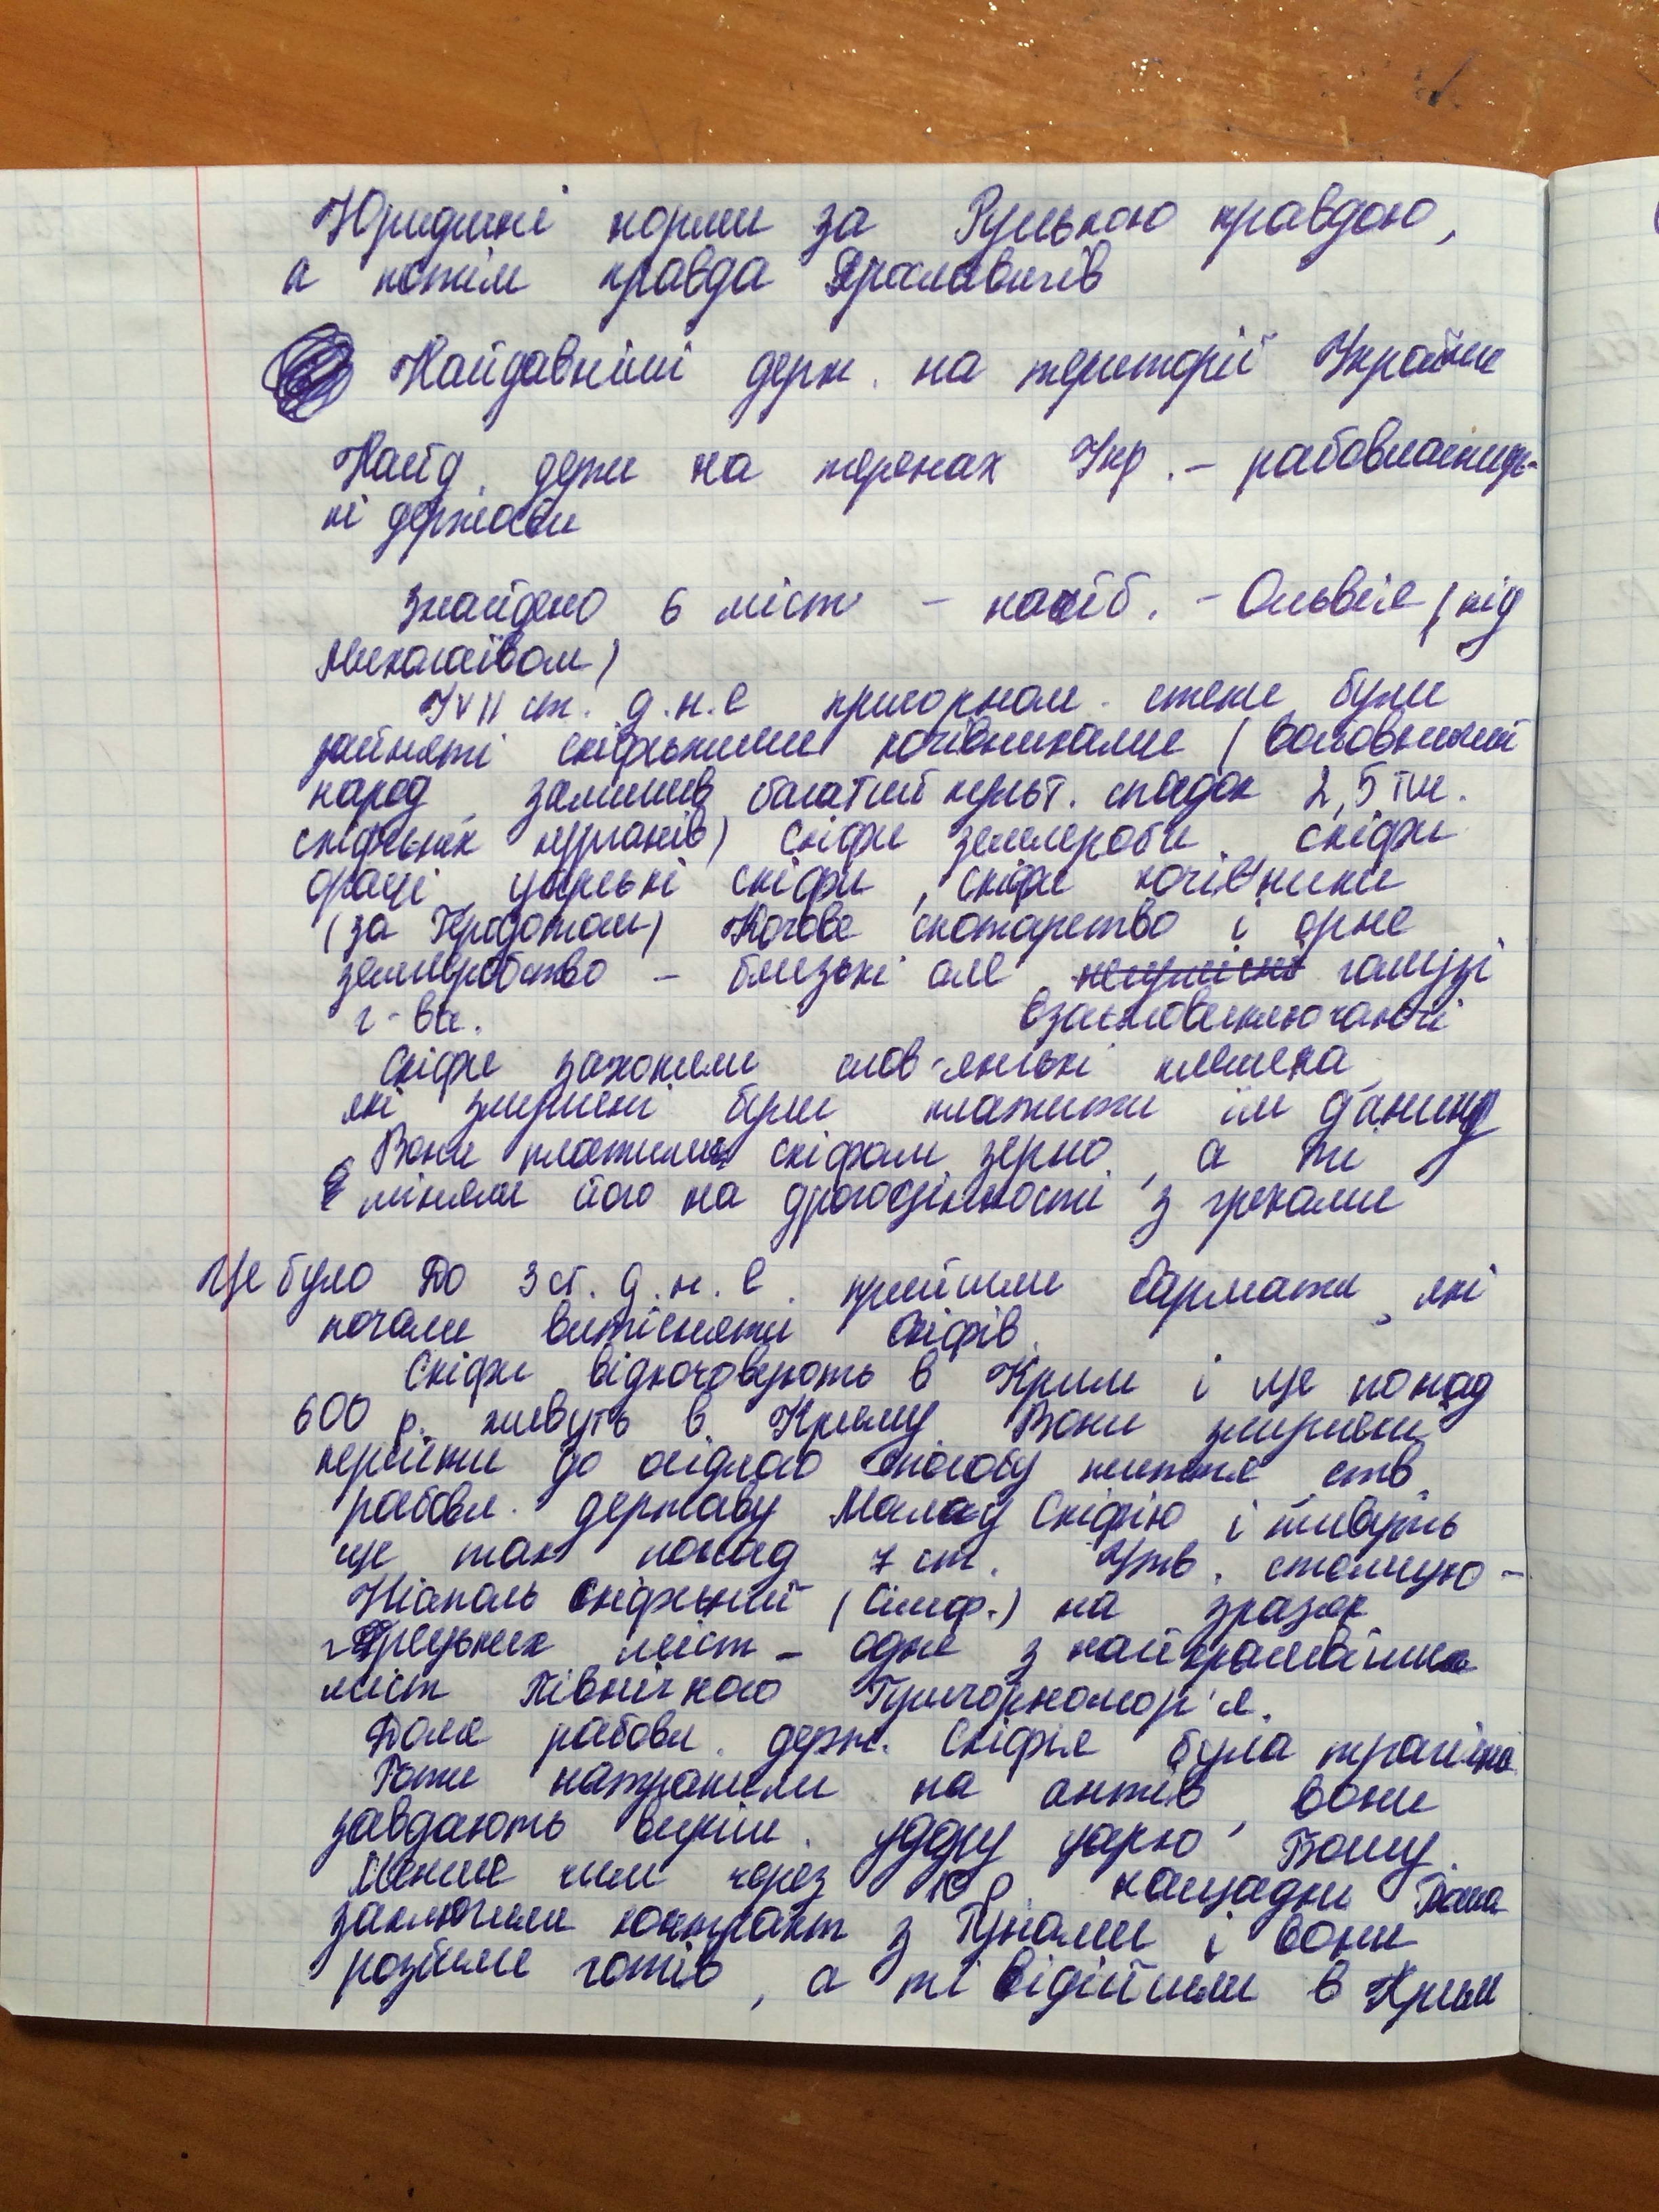 Юридичні норми за Руською правдою,
а потім правда Ярославичів
Найдавніші держ. на території України
Найд. держ на теренах Укр. – рабовласниць-
кі держави
Знайдено 6 міст – наиб. – Ольвія (під
Миколаївом)
У VII ст. д.н.е причорном. степи були
зайняті скіфськими кочівниками (войовничий
народ, залишив багатий культ. спадок 2,5 тис.
скіфських курганів) Скіфи землероби, скіфи
орачі, царські скіфи, скіфи кочівники
(за Геродотом) Кочове скотарство і орне
землеробство – близькі але галузі
г-ва. взаємовиключаючі
Скіфи захопили слов'янські племена,
які змушені були платити їм данину
Вони платили скіфам зерно, а ті
міняли його на дрогоцінності з греками
Це було До 3 ст. д.н.е. прийшли Сармати, які
почали витісняти Скіфів.
Скіфи відкочовують в Крим і ще понад
600 р. живуть в Криму. Вони змушені
перейти до осідлого способу життя, ств.
рабовл. державу Малау Скіфію і живуть
ще так понад 7 ст. Утв. столицю –
Ніаполь скіфський (Сімф.) на зразок
грецьких міст – одне з найкрасивіших
міст Північного Причорномор'я.
Доля рабовл. держ. Скіфія була трагічна
Готи натрапили на антів, вони
завдають удару царю Божу.
Менше чим через 10 р. нащадки Божа
заключили контракт з Гунами і вони
розбили готів, а ті відійшли в Крим